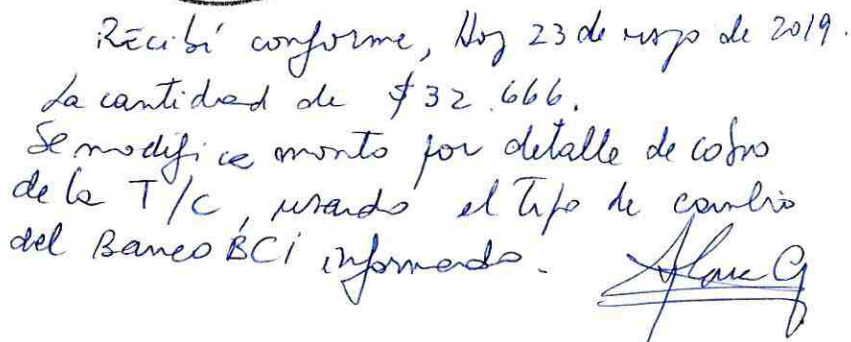 Recibí conforme, Hoy 23 de mayo de 2019.
La cantidad de $32.666.
Se modifica monto por detalle de cobro
de la T/C, usando el Tipo de cambio
del Banco BCI informado.